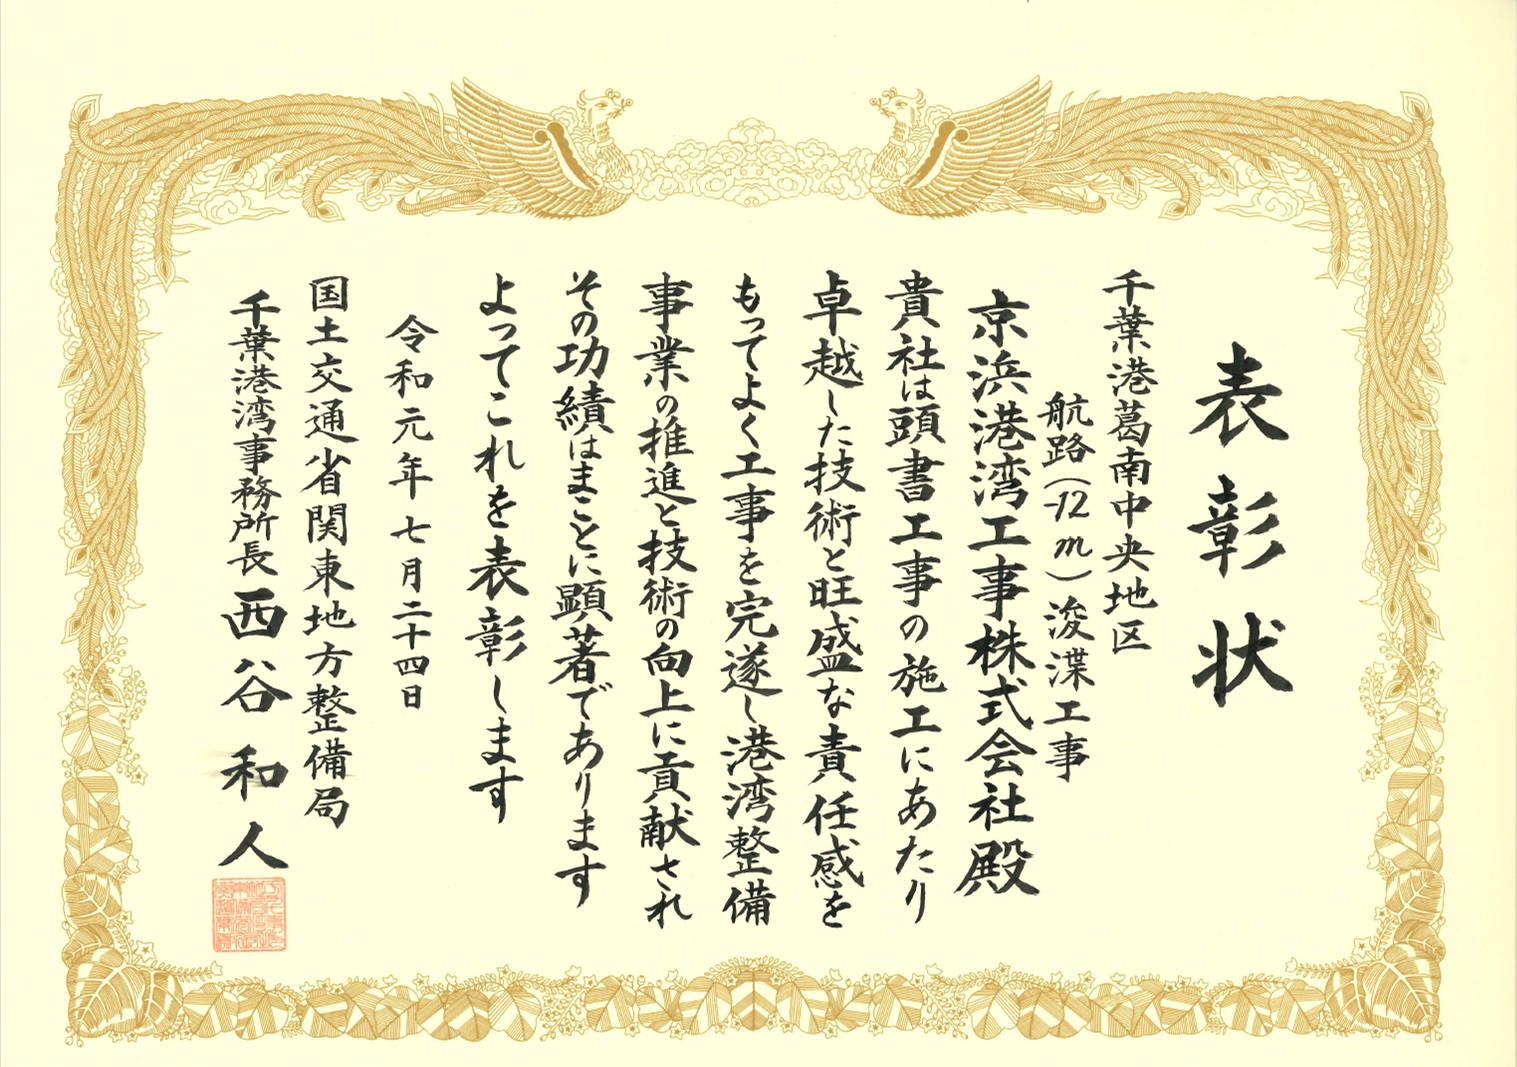 表彰状
千葉港葛南中央地区
航路(-12m)浚渫工事
京浜港湾工事株式会社殿
貴社は頭書工事の施工にあたり
卓越した技術と旺盛な責任感を
もってよく工事を完遂し港湾整備
事業の推進と技術の向上に貢献され
その功績はまことに顕著であります
よってこれを表彰します
令和元年七月二十四日
国土交通省関東地方整備局
千葉港湾事務所長 西谷和人